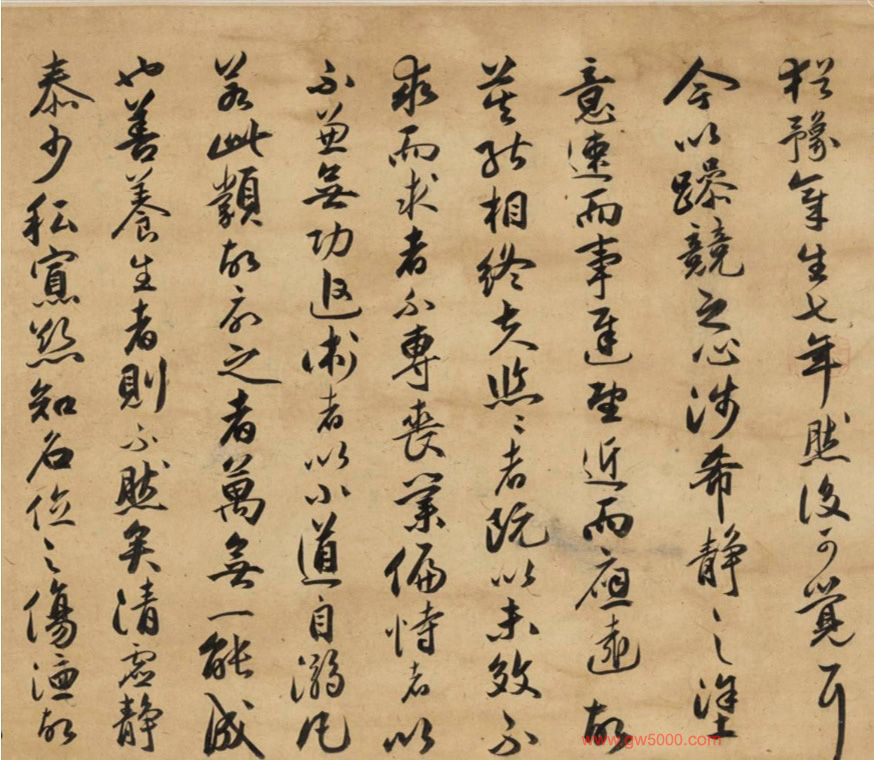 猶豫章生七年然後可覺耳
今以躁競之心涉希靜之塗
意速而事遲望近而應遠故
莫能相終夫悠〻者既以未效不
求而求者不專喪業偏恃者以
不兼無功追術者以小道自溺凡
若此類故欲之者萬無一能成
也善養生者則不然矣清虛靜
泰少私寡欲知名位之傷德故
www.gw5000.com